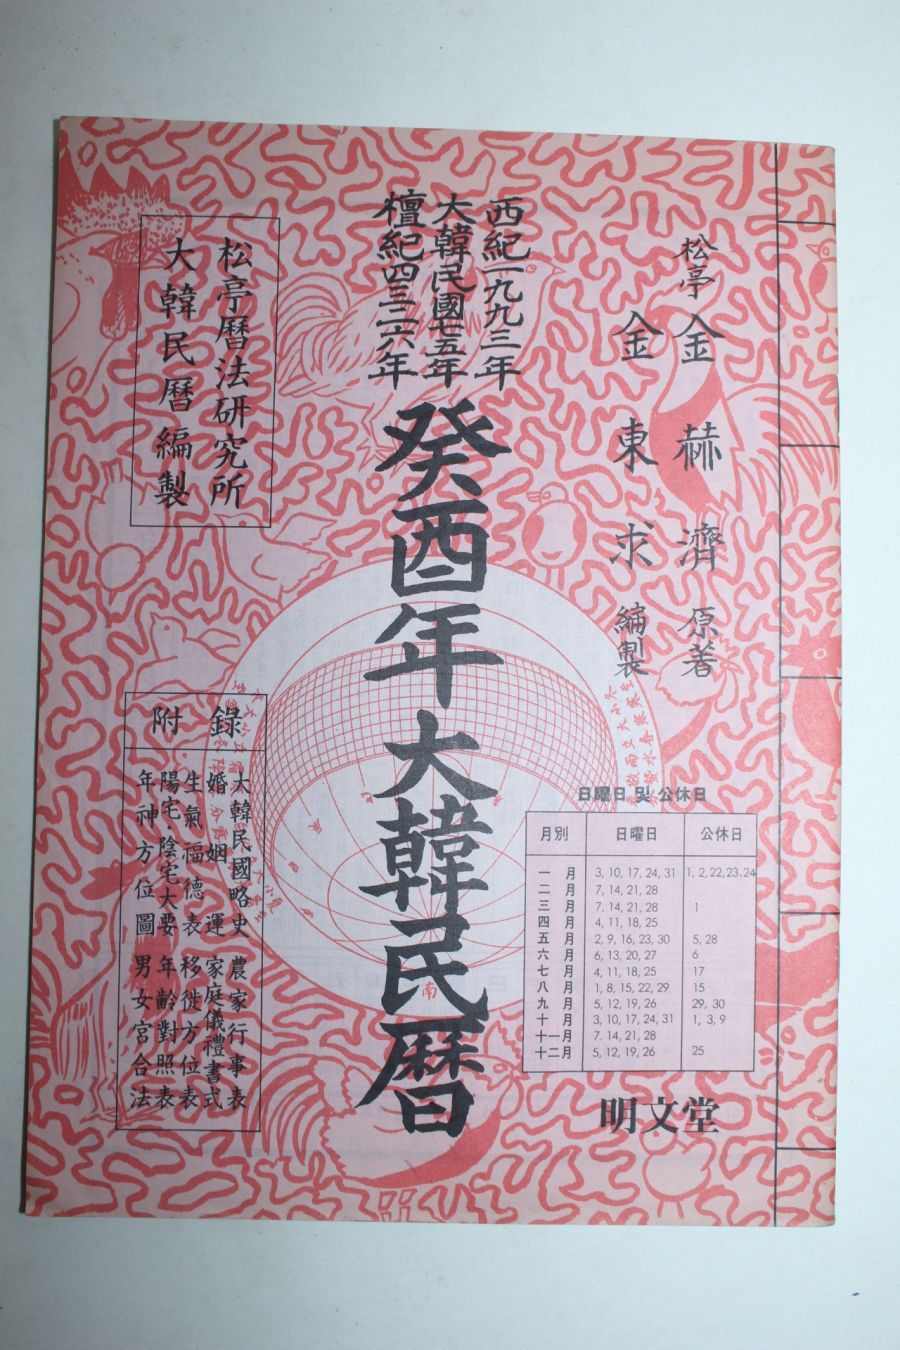 松亭 金赫濟 原著
金東求 編製
西紀一九九三年
大韓民國七五年
檀紀四三二六年
癸酉年大韓民曆
松亭曆法研究所
大韓民曆編製
附錄
大韓民國略史 農家行事表
婚姻運 家庭儀禮書式
生氣福德表 移徙方位表
陽宅·陰宅大要 年齡對照表
年神方位圖 男女宮合法
日曜日 및 公休日
月別 日曜日 公休日
一月 3, 10, 17, 24, 31 1, 2, 22, 23, 24
二月 7, 14, 21, 28
三月 7, 14, 21, 28 1
四月 4, 11, 18, 25
五月 2, 9, 16, 23, 30 5, 28
六月 6, 13, 20, 27 6
七月 4, 11, 18, 25 17
八月 1, 8, 15, 22, 29 15
九月 5, 12, 19, 26 29, 30
十月 3, 10, 17, 24, 31 1, 3, 9
十一月 7, 14, 21, 28
十二月 5, 12, 19, 26 25
明文堂
南